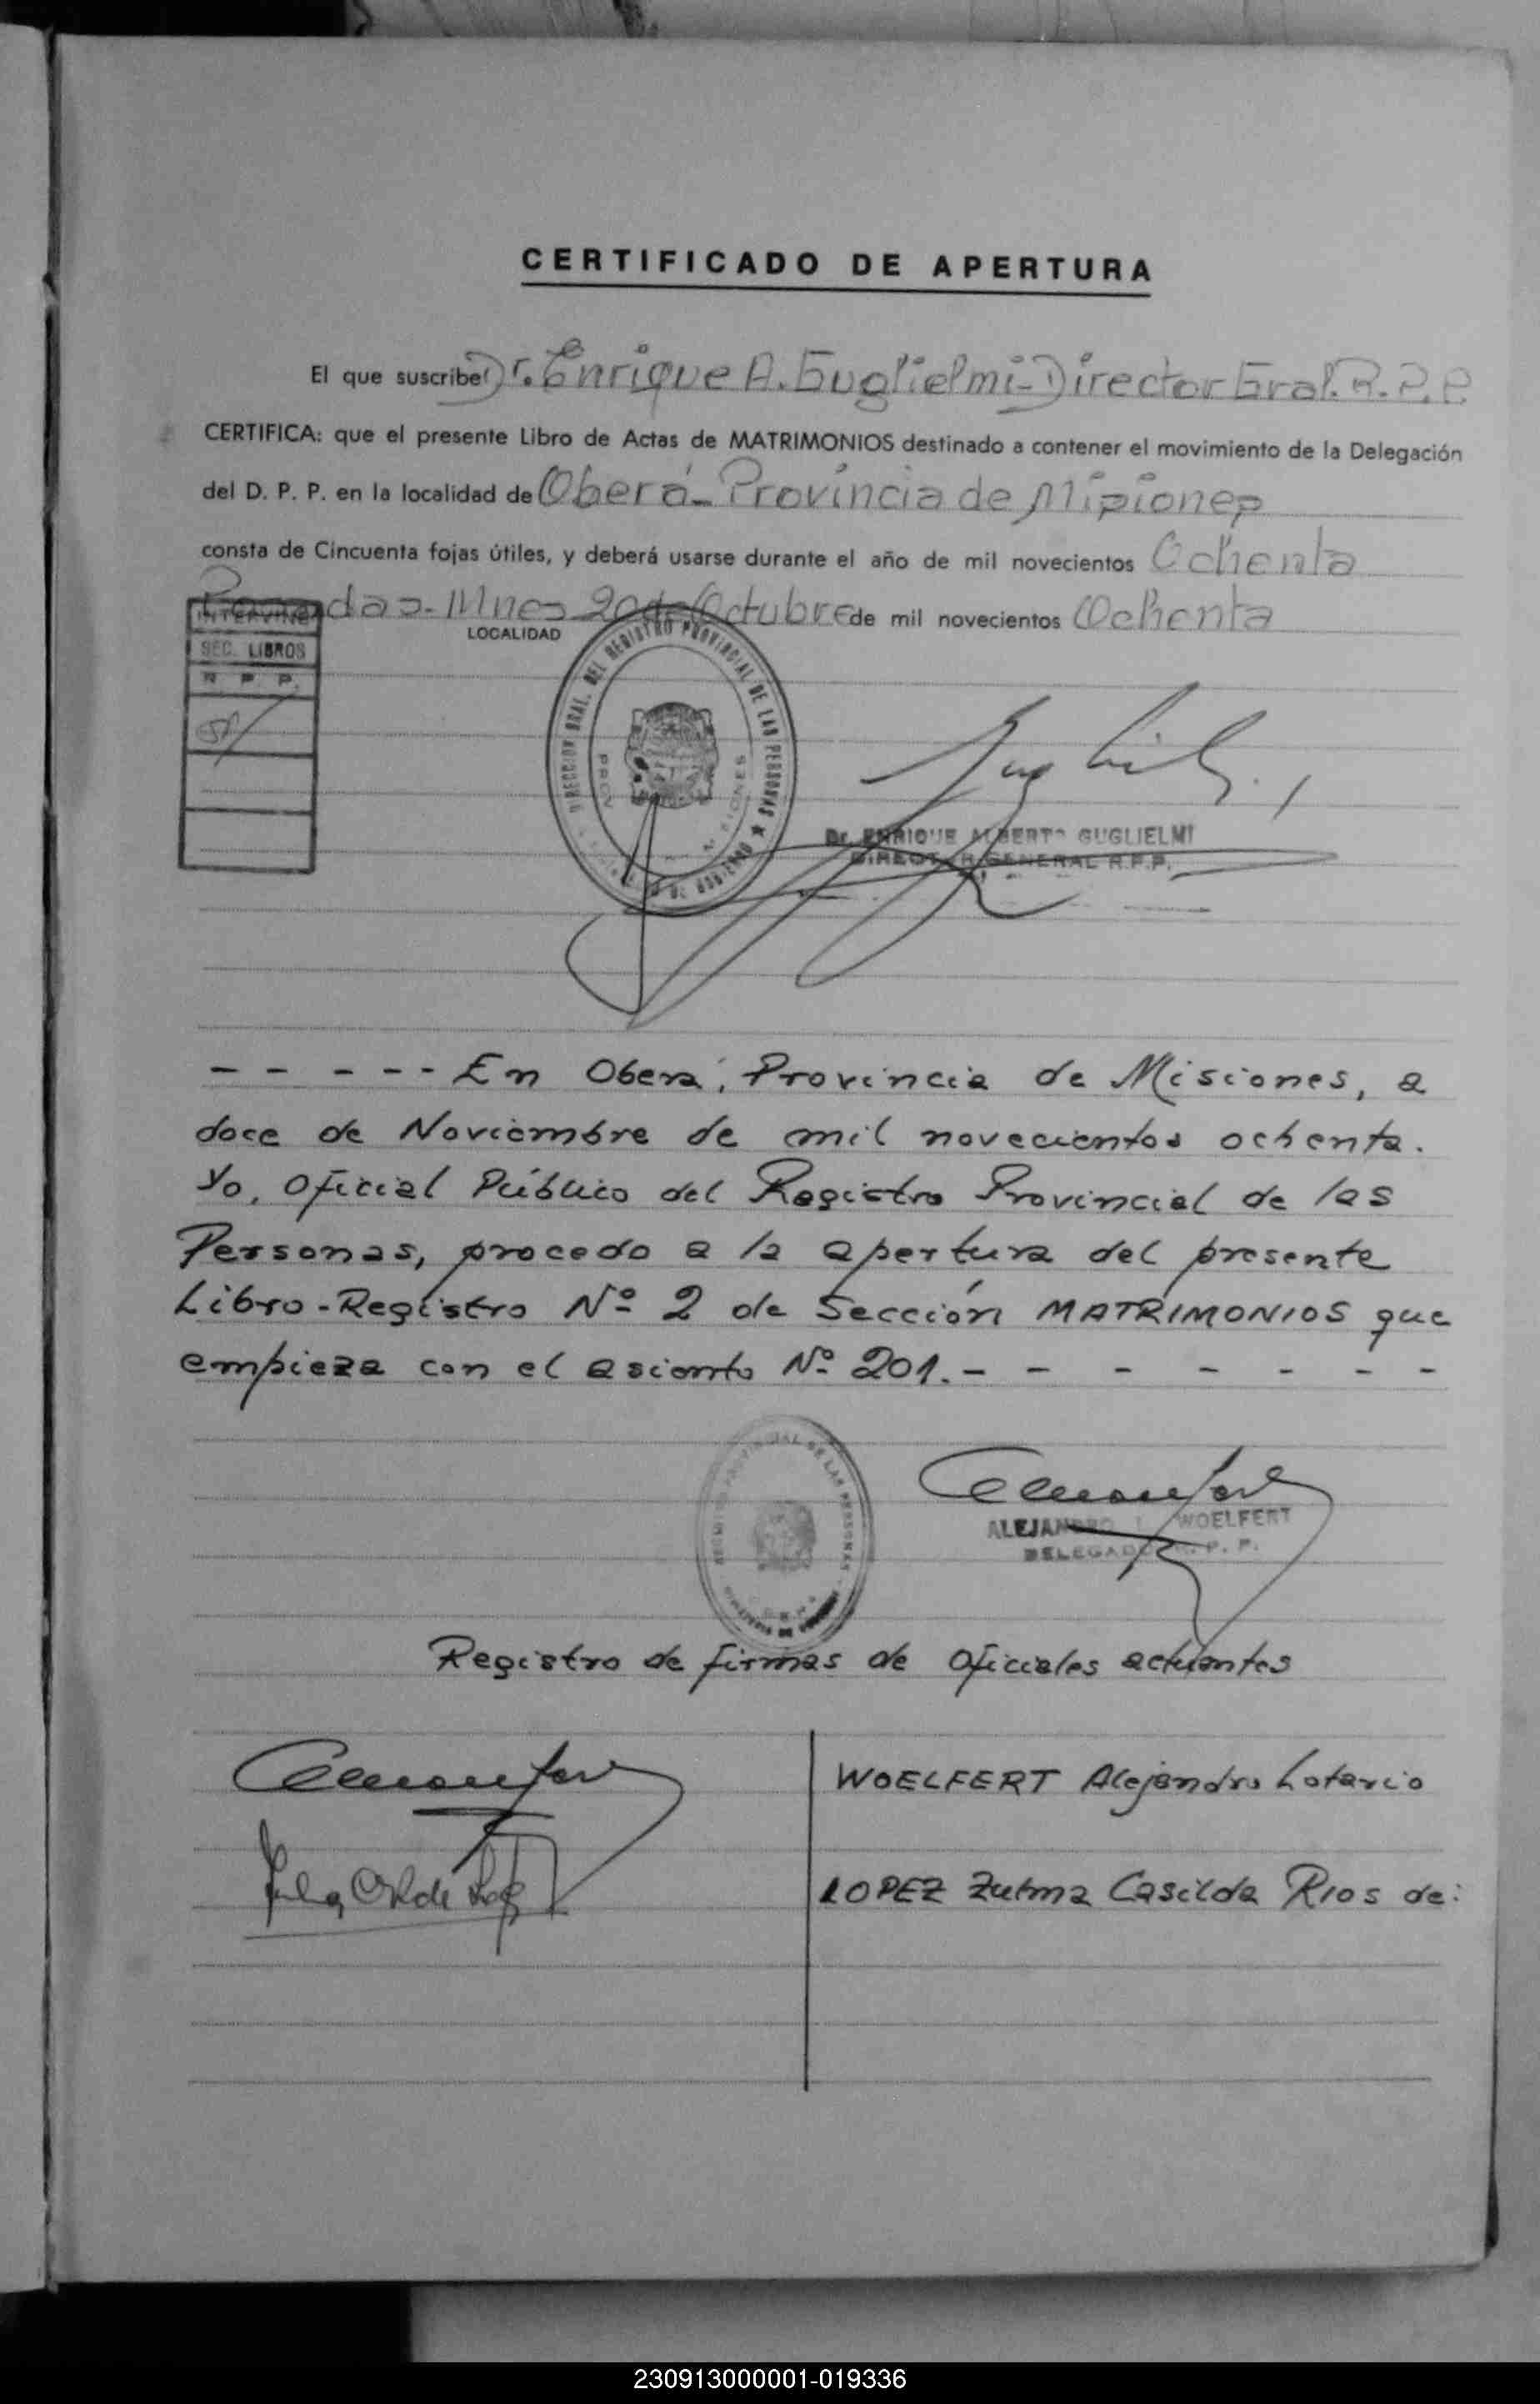 CERTIFICADO DE APERTURA
El que suscribe Dr. Enrique A. Guglielmi - Director Gral. R. P. P.
CERTIFICA: que el presente Libro de Actas de MATRIMONIOS destinado a contener el movimiento de la Delegación
del D. P. P. en la localidad de Oberá - Provincia de Misiones
consta de Cincuenta fojas útiles, y deberá usarse durante el año de mil novecientos Ochenta
Posadas - Mnes 20 de Octubre de mil novecientos Ochenta
LOCALIDAD
INTERVINE
SEC. LIBROS
R. P. P.
DIRECCION GRAL. DEL REGISTRO PROVINCIAL DE LAS PERSONAS
Dr. ENRIQUE ALBERTO GUGLIELMI
DIRECTOR GENERAL R.P.P.
- - - - - En Oberá, Provincia de Misiones, a
doce de Noviembre de mil novecientos ochenta.
Yo, Oficial Público del Registro Provincial de las
Personas, procedo a la apertura del presente
Libro-Registro Nº 2 de Sección MATRIMONIOS que
empieza con el asiento Nº 201. - - - - - - -
REGISTRO PROVINCIAL DE LAS PERSONAS
ALEJANDRO L. WOELFERT
DELEGADO R. P. P.
Registro de firmas de Oficiales actuantes
WOELFERT Alejandro Lotario
LOPEZ Zulma Casilda Rios de:
230913000001-019336